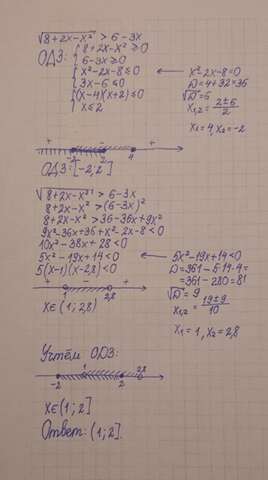 √8+2x-x² > 6-3x
ОДЗ: { 8+2x-x² ≥ 0
6-3x ≥ 0
x²-2x-8 ≤ 0 ← x²-2x-8=0
3x-6 ≤ 0 D=4+32=36
(x-4)(x+2) ≤ 0 √D=6
x ≤ 2 x₁,₂ = 2±6/2
x₁=4, x₂=-2
+ - +
-2 2 4
ОДЗ: [-2;2]
√8+2x-x² > 6-3x
8+2x-x² > (6-3x)²
8+2x-x² > 36-36x+9x²
9x²-36x+36+x²-2x-8<0
10x²-38x+28<0
5x²-19x+14<0 ← 5x²-19x+14<0
5(x-1)(x-2,8)<0 D=361-5·19·4=
=361-280=81
+ - + √D=9
1 2,8 x₁,₂ = 19±9/10
x∈(1;2,8)
x₁=1, x₂=2,8
Учтём ОДЗ:
-2 1 2 2,8
x∈(1;2]
Ответ: (1;2].